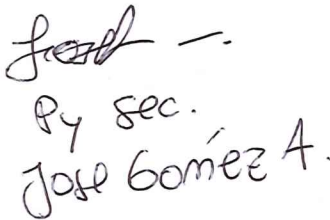 Py sec.
Jose Goméz A.